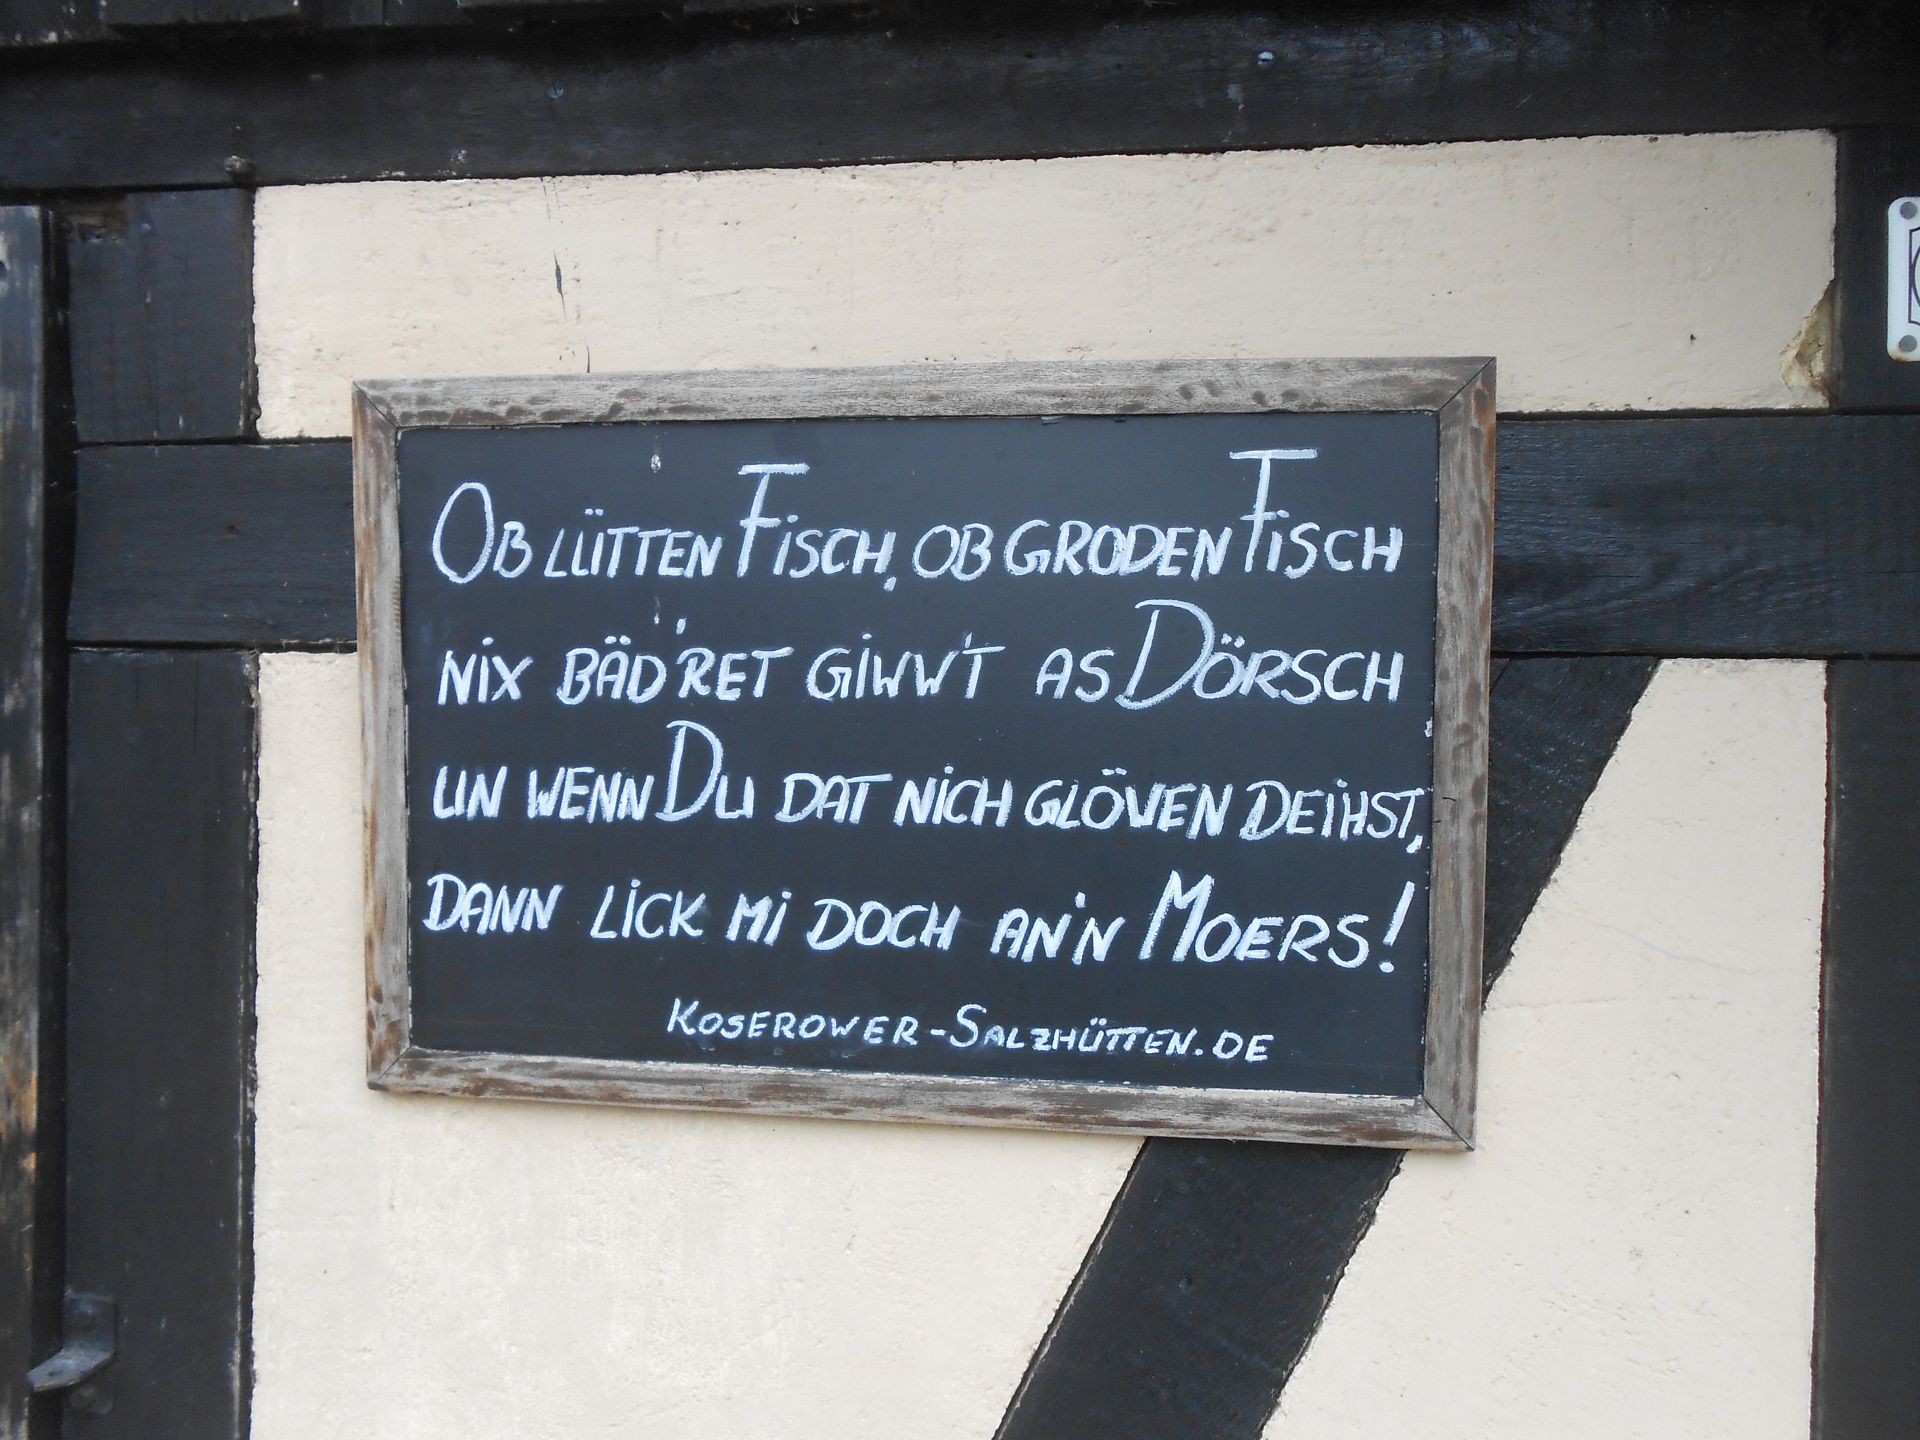 Ob lütten Fisch, ob groden Fisch
nix bäd'ret giwwt as Dörsch
un wenn Du dat nich glöven deihst,
dann lick mi doch an'n Moers!
Koserower-Salzhütten.de